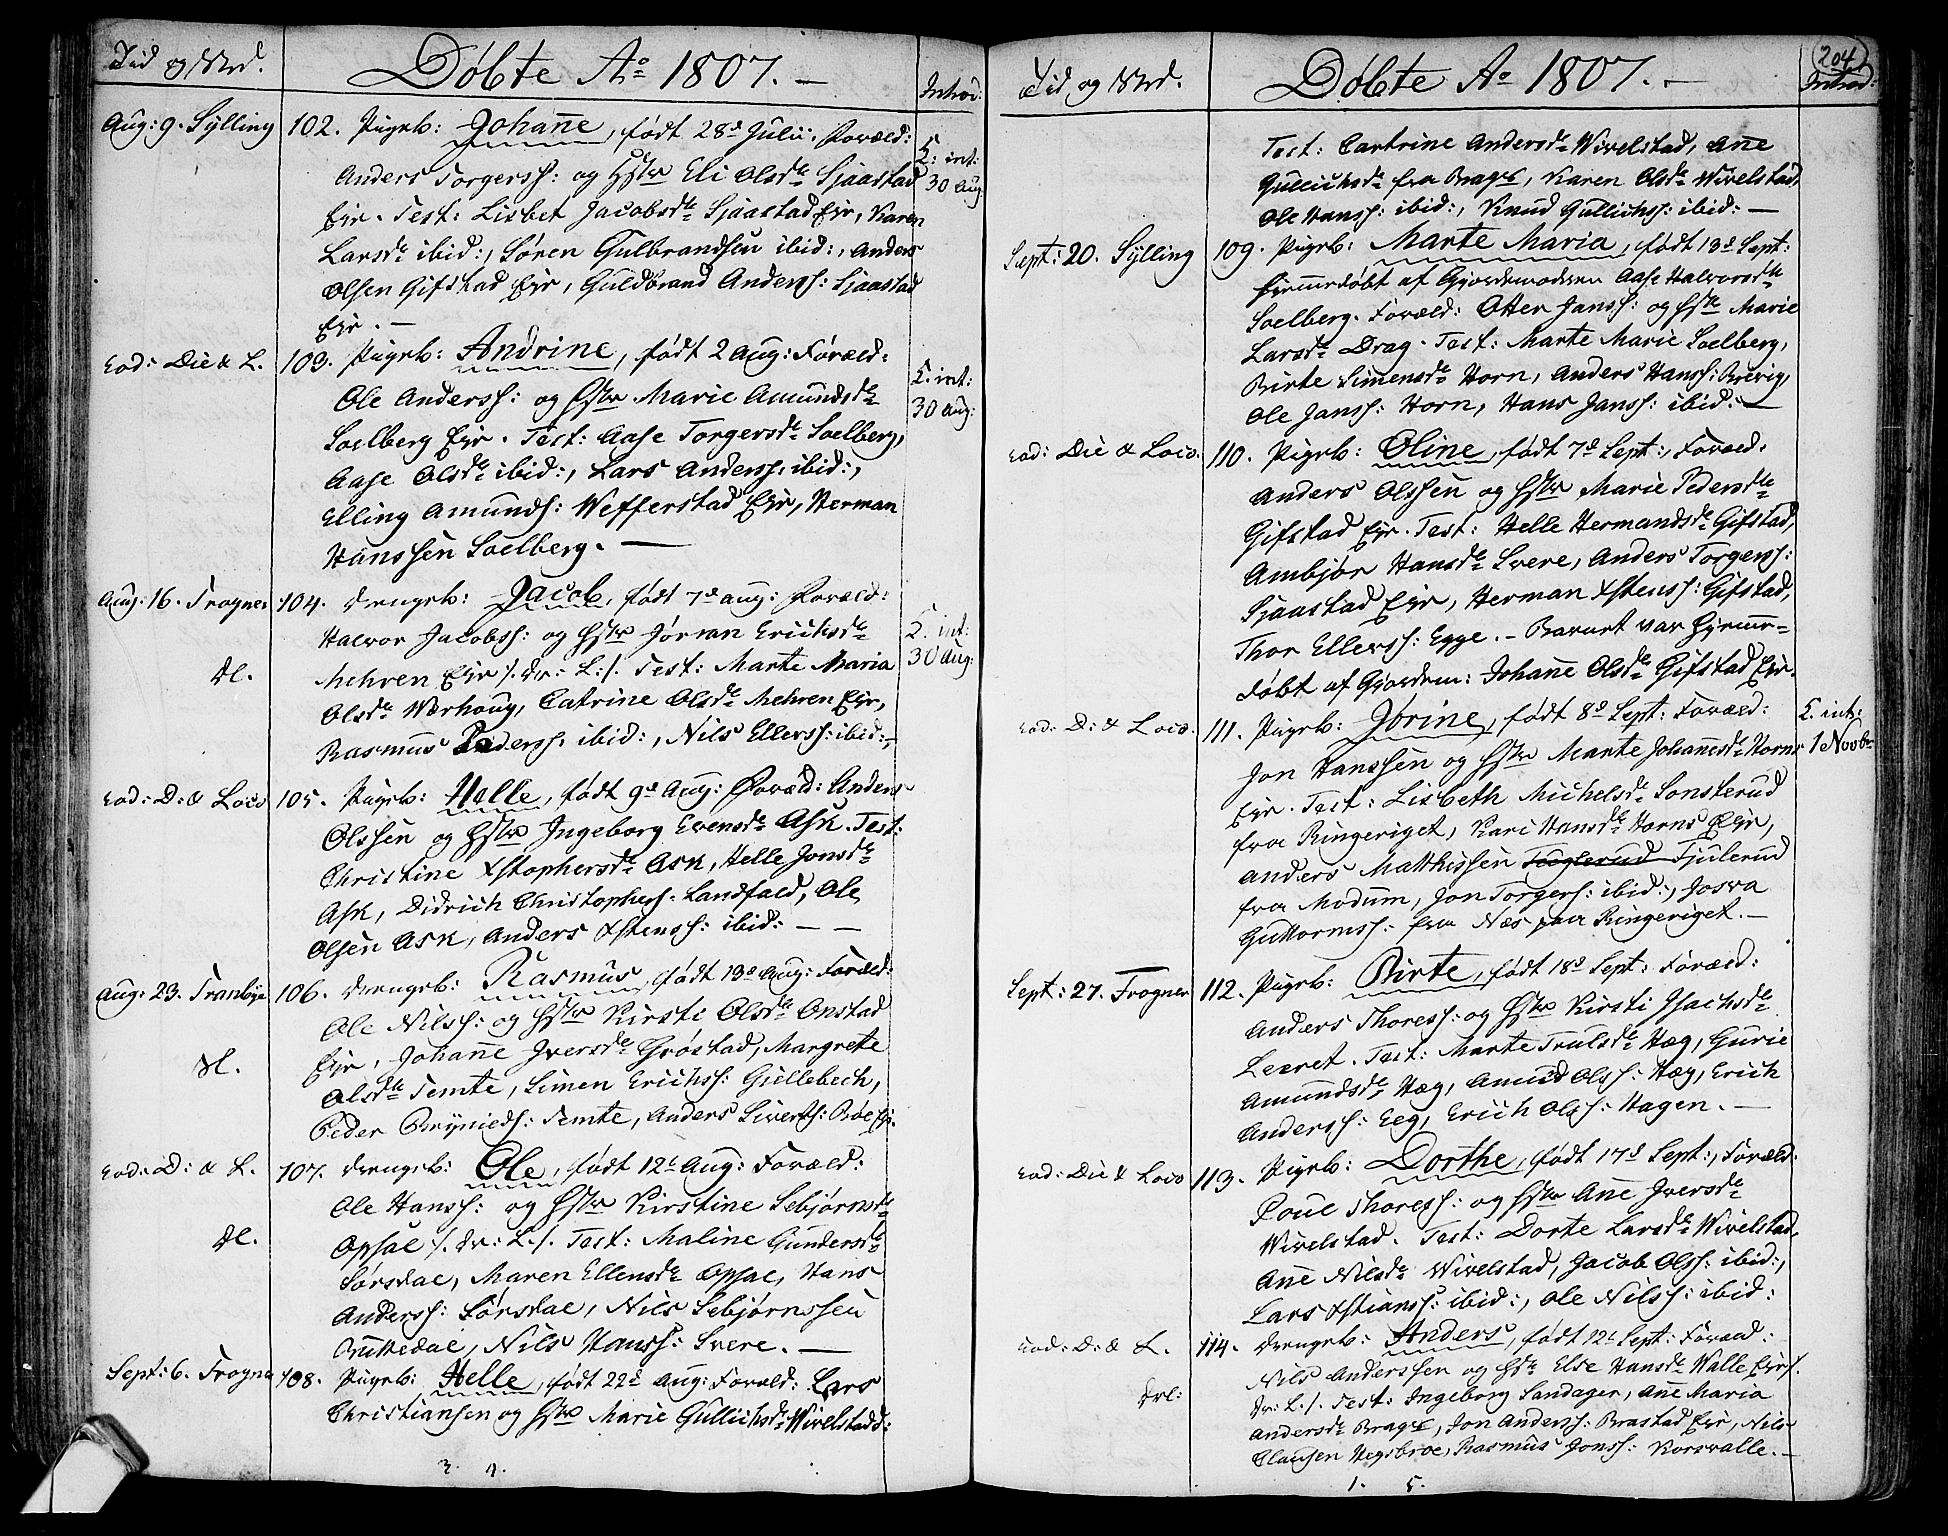 Tid og Sted.
Døbte Ao 1807. —
Introd:
Aug: 9. Sÿlling
102. Pigeb: Johañe, født 28de Julii. Foræld:
Anders Torgerss: og Hstr Eli Olsdtr Sjaastad
Eÿr. Test: Lisbet Jacobsdtr Sjaastad Eÿr, Karen
Larsdtr ibid:, Søren Gulbrandsen ibid:, Anders
Olsen Gifstad Eÿr, Guldbrand Anderss: Sjaastad
Eÿr. —
int:
30 Aug:
Eod: Die & L.
103. Pigeb: Andrine, født 2 Aug: Foræld:
Ole Anderss: og Hstr Marie Amundsdtr
Solberg Eÿr. Test: Aase Torgersdtr Solberg,
Aase Olsdtr ibid:, Lars Anderss: ibid:,
Elling Amunds: Wefferstad Eÿr, Herman
Hanssen Solberg. —
int:
30 Aug:
Aug: 16. Trogner
104. Drengeb: Jacob, født 7de Aug: Foræld:
Halvor Jacobss: og Hstr Jørran Erichsdtr
Mehren Eÿr /. Dr: L: /. Test: Marte Maria
Dl.
Olsdtr Wærhoug, Catrine Olsdtr Mehren Eÿr,
Rasmus Pederss: ibid:, Nils Ellerss: ibid:,
int:
30 Aug:
Eod: D: & Loco
105. Pigeb: Helle, født 9de Aug: Foræld: Anders
Olssen og Hstr Ingeborg Evensdtr Ask. Test:
Christine Xstophersdtr Ask, Helle Jonsdtr
Ask, Didrich Christopherss: Landfald, Ole
Olsen Ask, Anders Xstenss: ibid: — —
Aug: 23. Tranbye
106. Drengeb: Rasmus, født 13de Aug: Foræld:
Ole Nilss: og Hstr Kirsti Olsdtr Onstad
Eÿr, Johañe Iversdtr Grøstad, Margrete
Dl.
Olsdtr Temte, Simen Erichss: Gjellebech,
Peder Brÿnieds: Temte, Anders Siverts: Bøe Eÿr.
Eod: D: & L.
107. Drengeb: Ole, født 12te Aug: Foræld:
Ole Hanss: og Hstr Kirstine Sebjørnsdtr
Opsal /. Dr: L: /. Test: Maline Gundersdtr
Dl.
Sørsdal, Maren Ellensdtr Opsal, Hans
Anderss: Sørsdal, Nils Sebjørnssen
Buttedal, Nils Hanss: Svere. —
Sept: 6. Trogner
108. Pigeb: Helle, født 22de Aug: Foræld: Lars
Christiansen og Hstr Marie Gullichsdtr Wivelstad:
3. 4.
Tid og Sted.
Døbte Ao 1807. —
204
Introd:
Test: Cartrine Andersdtr Wivelstad, Añe
Gullichsdtr fra Brages, Karen Olsdtr Wivelstad,
Ole Hanss: ibid:, Knud Gullichss: ibid: —
Sept: 20. Sÿlling
109. Pigeb: Marte Maria, født 13de Sept:
hjemmedøbt af Gjordemoderen Aase Halvorsdtr
Solberg. Foræld: Otter Janss: og Hstr Marie
Larsdtr Drag. Test: Marte Marie Solberg,
Birte Simensdtr Horn, Anders Hanss: Brevig,
Ole Janss: Horn, Hans Janss: ibid: —
Eod: Die & Loco.
110. Pigeb: Oline, født 7de Sept:, Foræld.
Anders Olssen og Hstr Marie Pedersdtr
Gifstad Eÿr. Test: Helle Hermandsdtr Gifstad,
Ambjør Hansdtr Svere, Anders Torgerss:
Sjaastad Eÿr, Herman Xstenss: Gifstad,
Thor Ellerss: Egge. — Barnet var hjemme-
døbt af Gjordem: Johañe Olsdtr Gifstad Eÿr.
Eod: D: & Loco.
111. Pigeb: Jørine, født 8de Sept: Foræld:
Jon Hanssen og Hstr Marte Johañesdtr Horns
Eÿr. Test: Lisbeth Michelsdtr Sonsterud
fra Ringeriget, Kari Hansdtr Horns Eÿr,
Anders Matthissen Tjulerud
fra Modum, Jon Torgerss: ibid:, Josva
Guttormss: fra Næs paa Ringeriget. —
int:
1 Novbr
Sept: 27. Trogner
112. Pigeb: Birte, født 18de Sept: Foræld:
Anders Thoress: og Hstr Kirsti Isachsdtr
Leeret. Test: Marte Trulsdtr Hæg, Gurie
Amundsdtr Hæg, Amund Olss: Hæg, Erich
Anderss: Eeg, Erich Olss: Hagen. —
Eod: Die & Loco
113. Pigeb: Dorthe, født 17de Sept:, Foræld:
Poul Thoress: og Hstr Añe Iversdtr
Wivelstad. Test: Dorte Larsdtr Wivelstad,
Añe Nilsdtr Wivelstad, Jacob Olss: ibid:,
Lars Xstianss: ibid:, Ole Nilss: ibid:
Eod: D: & L.
114. Drengeb: Anders, født 12te Sept: Foræld:
Nils Anderssen og Hstr Else Hansdtr Walle Eÿr /.
Dr: L: /. Test: Ingeborg Sandager, Añe Maria
Andersdtr Brages, Jon Anderss: Brastad Eÿr, Nils
Clausen Hegsbroe, Rasmus Jonss: Korsvalle. —
1. 5.